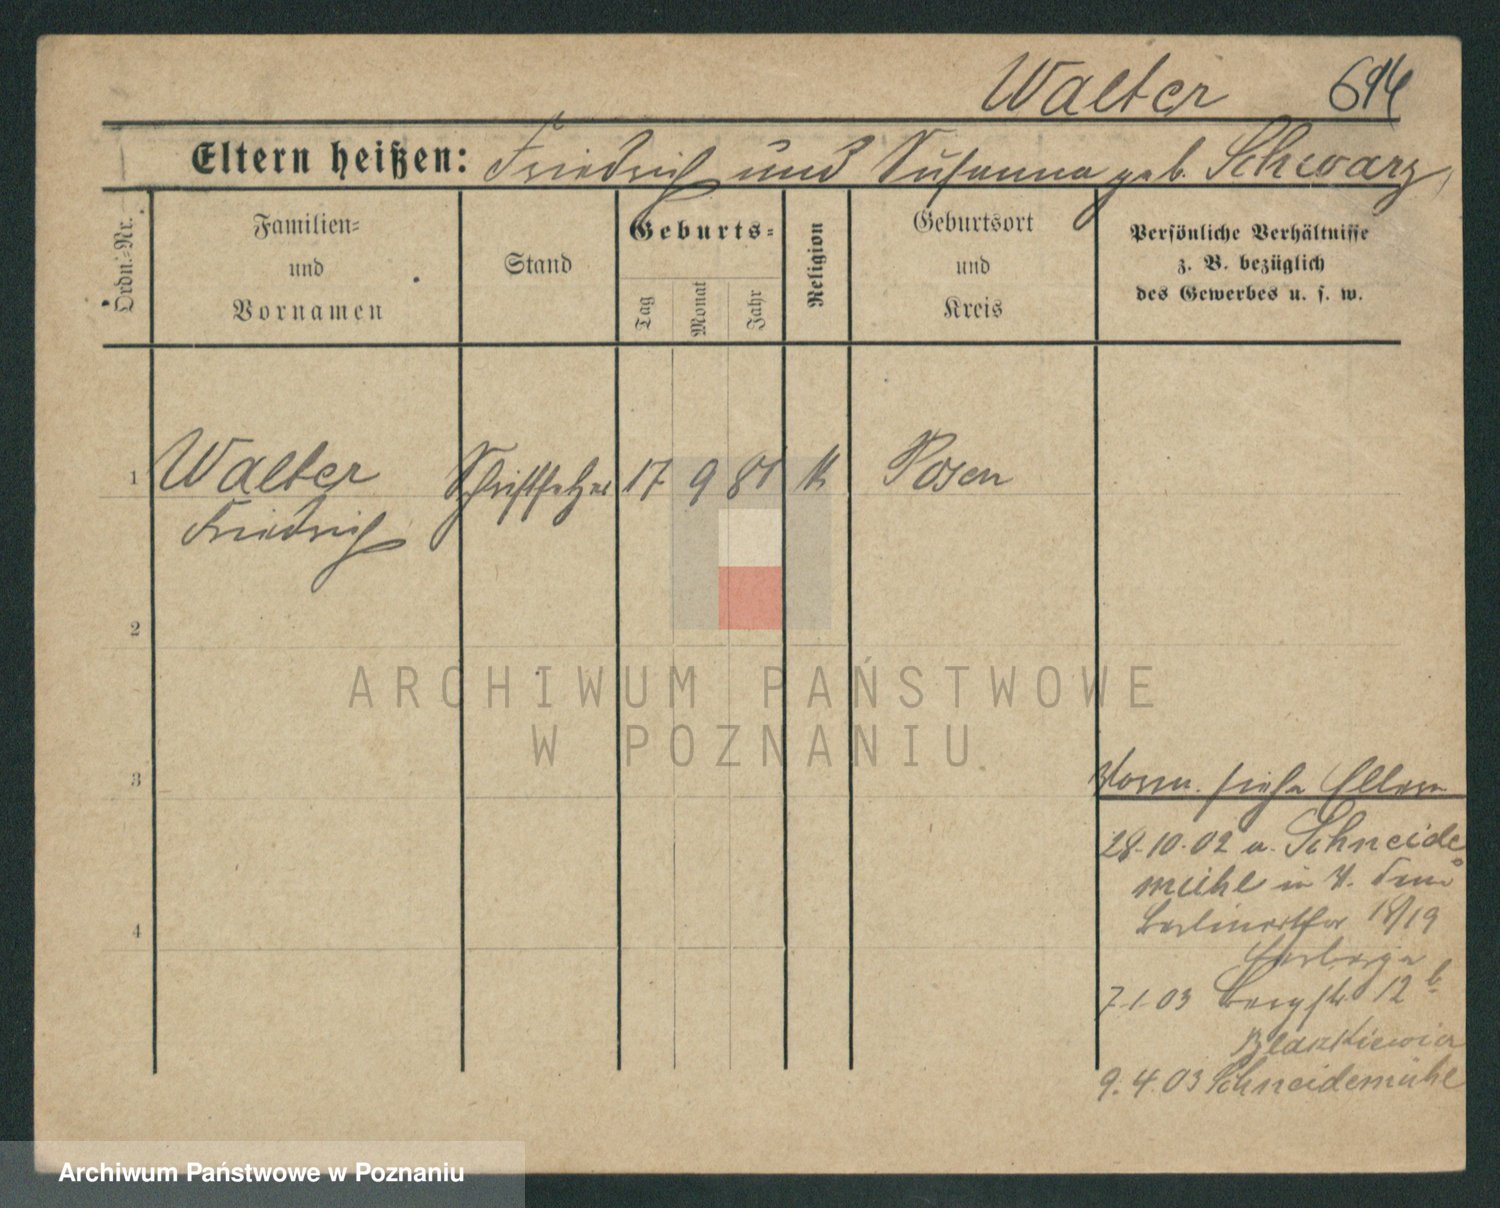 Walter 614
Eltern heißen: Friedrich und Susanna geb. Schwarz,
Ordn.-Nr.
Familien-
und
Vornamen
Stand
Geburts-
Tag
Monat
Jahr
Religion
Geburtsort
und
Kreis
Persönliche Verhältnisse
z. B. bezüglich
des Gewerbes u. s. w.
1 Walter Schriftsetzer 17 9 81 k Posen
Friedrich
2
ARCHIWUM PAŃSTWOWE
W POZNANIU
3
Vorm. siehe Eltern
28.10.02 a. Schneide
mühl in
Berlinerstr 18/19
4
Herberge
7.1.03 Bergstr 12b
Blazkiewicz
9.4.03 Schneidemühl
Archiwum Państwowe w Poznaniu